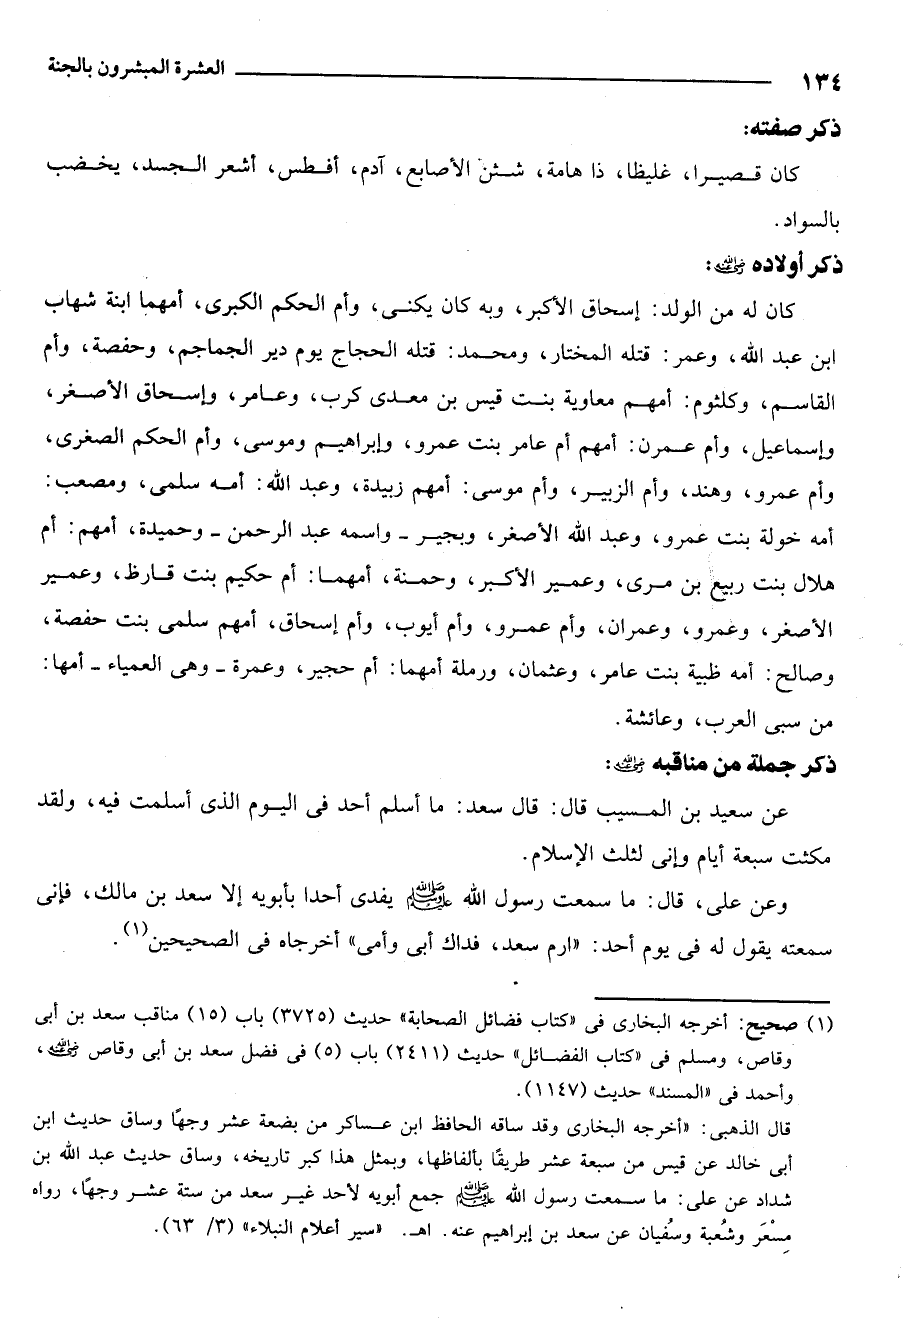 ١٣٤ العشرة المبشرون بالجنة
ذكر صفته:
كان قصيرا، غليظا، ذا هامة، شثن الأصابع، آدم، أفطس، أشعر الجسد، يخضب
بالسواد.
ذكر أولاده رضي الله عنه:
كان له من الولد: إسحاق الأكبر، وبه كان يكنى، وأم الحكم الكبرى، أمهما ابنة شهاب
ابن عبد الله، وعمر: قتله المختار، ومحمد: قتله الحجاج يوم دير الجماجم، وحفصة، وأم
القاسم، وكلثوم: أمهم معاوية بنت قيس بن معدى كرب، وعامر، وإسحاق الأصغر،
وإسماعيل، وأم عمرن: أمهم أم عامر بنت عمرو، وإبراهيم وموسى، وأم الحكم الصغرى،
وأم عمرو، وهند، وأم الزبير، وأم موسى: أمهم زبيدة، وعبد الله: أمه سلمى، ومصعب:
أمه خولة بنت عمرو، وعبد الله الأصغر، وبجير ـ واسمه عبد الرحمن ـ وحميدة، أمهم: أم
هلال بنت ربيع بن مرى، وعمير الأكبر، وحمنة، أمهما: أم حكيم بنت قارظ، وعمير
الأصغر، وعمرو، وعمران، وأم عمرو، وأم أيوب، وأم إسحاق، أمهم سلمى بنت حفصة،
وصالح: أمه ظبية بنت عامر، وعثمان، ورملة أمهما: أم حجير، وعمرة ـ وهى العمياء ـ أمها:
من سبى العرب، وعائشة.
ذكر جملة من مناقبه رضي الله عنه:
عن سعيد بن المسيب قال: قال سعد: ما أسلم أحد فى اليوم الذى أسلمت فيه، ولقد
مكثت سبعة أيام وإنى لثلث الإسلام.
وعن على، قال: ما سمعت رسول الله ﷺ يفدى أحدا بأبويه إلا سعد بن مالك، فإنى
سمعته يقول له فى يوم أحد: «ارم سعد، فداك أبى وأمى» أخرجاه فى الصحيحين(١).
(١) صحيح: أخرجه البخارى فى «كتاب فضائل الصحابة» حديث (٣٧٢٥) باب (١٥) مناقب سعد بن أبى
وقاص، ومسلم فى «كتاب الفضائل» حديث (٢٤١١) باب (٥) فى فضل سعد بن أبى وقاص رضي الله عنه،
وأحمد فى «المسند» حديث (١١٤٧).
قال الذهبى: «أخرجه البخارى وقد ساقه الحافظ ابن عساكر من بضعة عشر وجهًا وساق حديث ابن
أبى خالد عن قيس من سبعة عشر طريقًا بألفاظها، وبمثل هذا كبر تاريخه، وساق حديث عبد الله بن
شداد عن على: ما سمعت رسول الله ﷺ جمع أبويه لأحد غير سعد من ستة عشر وجهًا، رواه
مِسْعَر وشُعبة وسُفيان عن سعد بن إبراهيم عنه. اهـ. «سير أعلام النبلاء» (٣/ ٦٣).